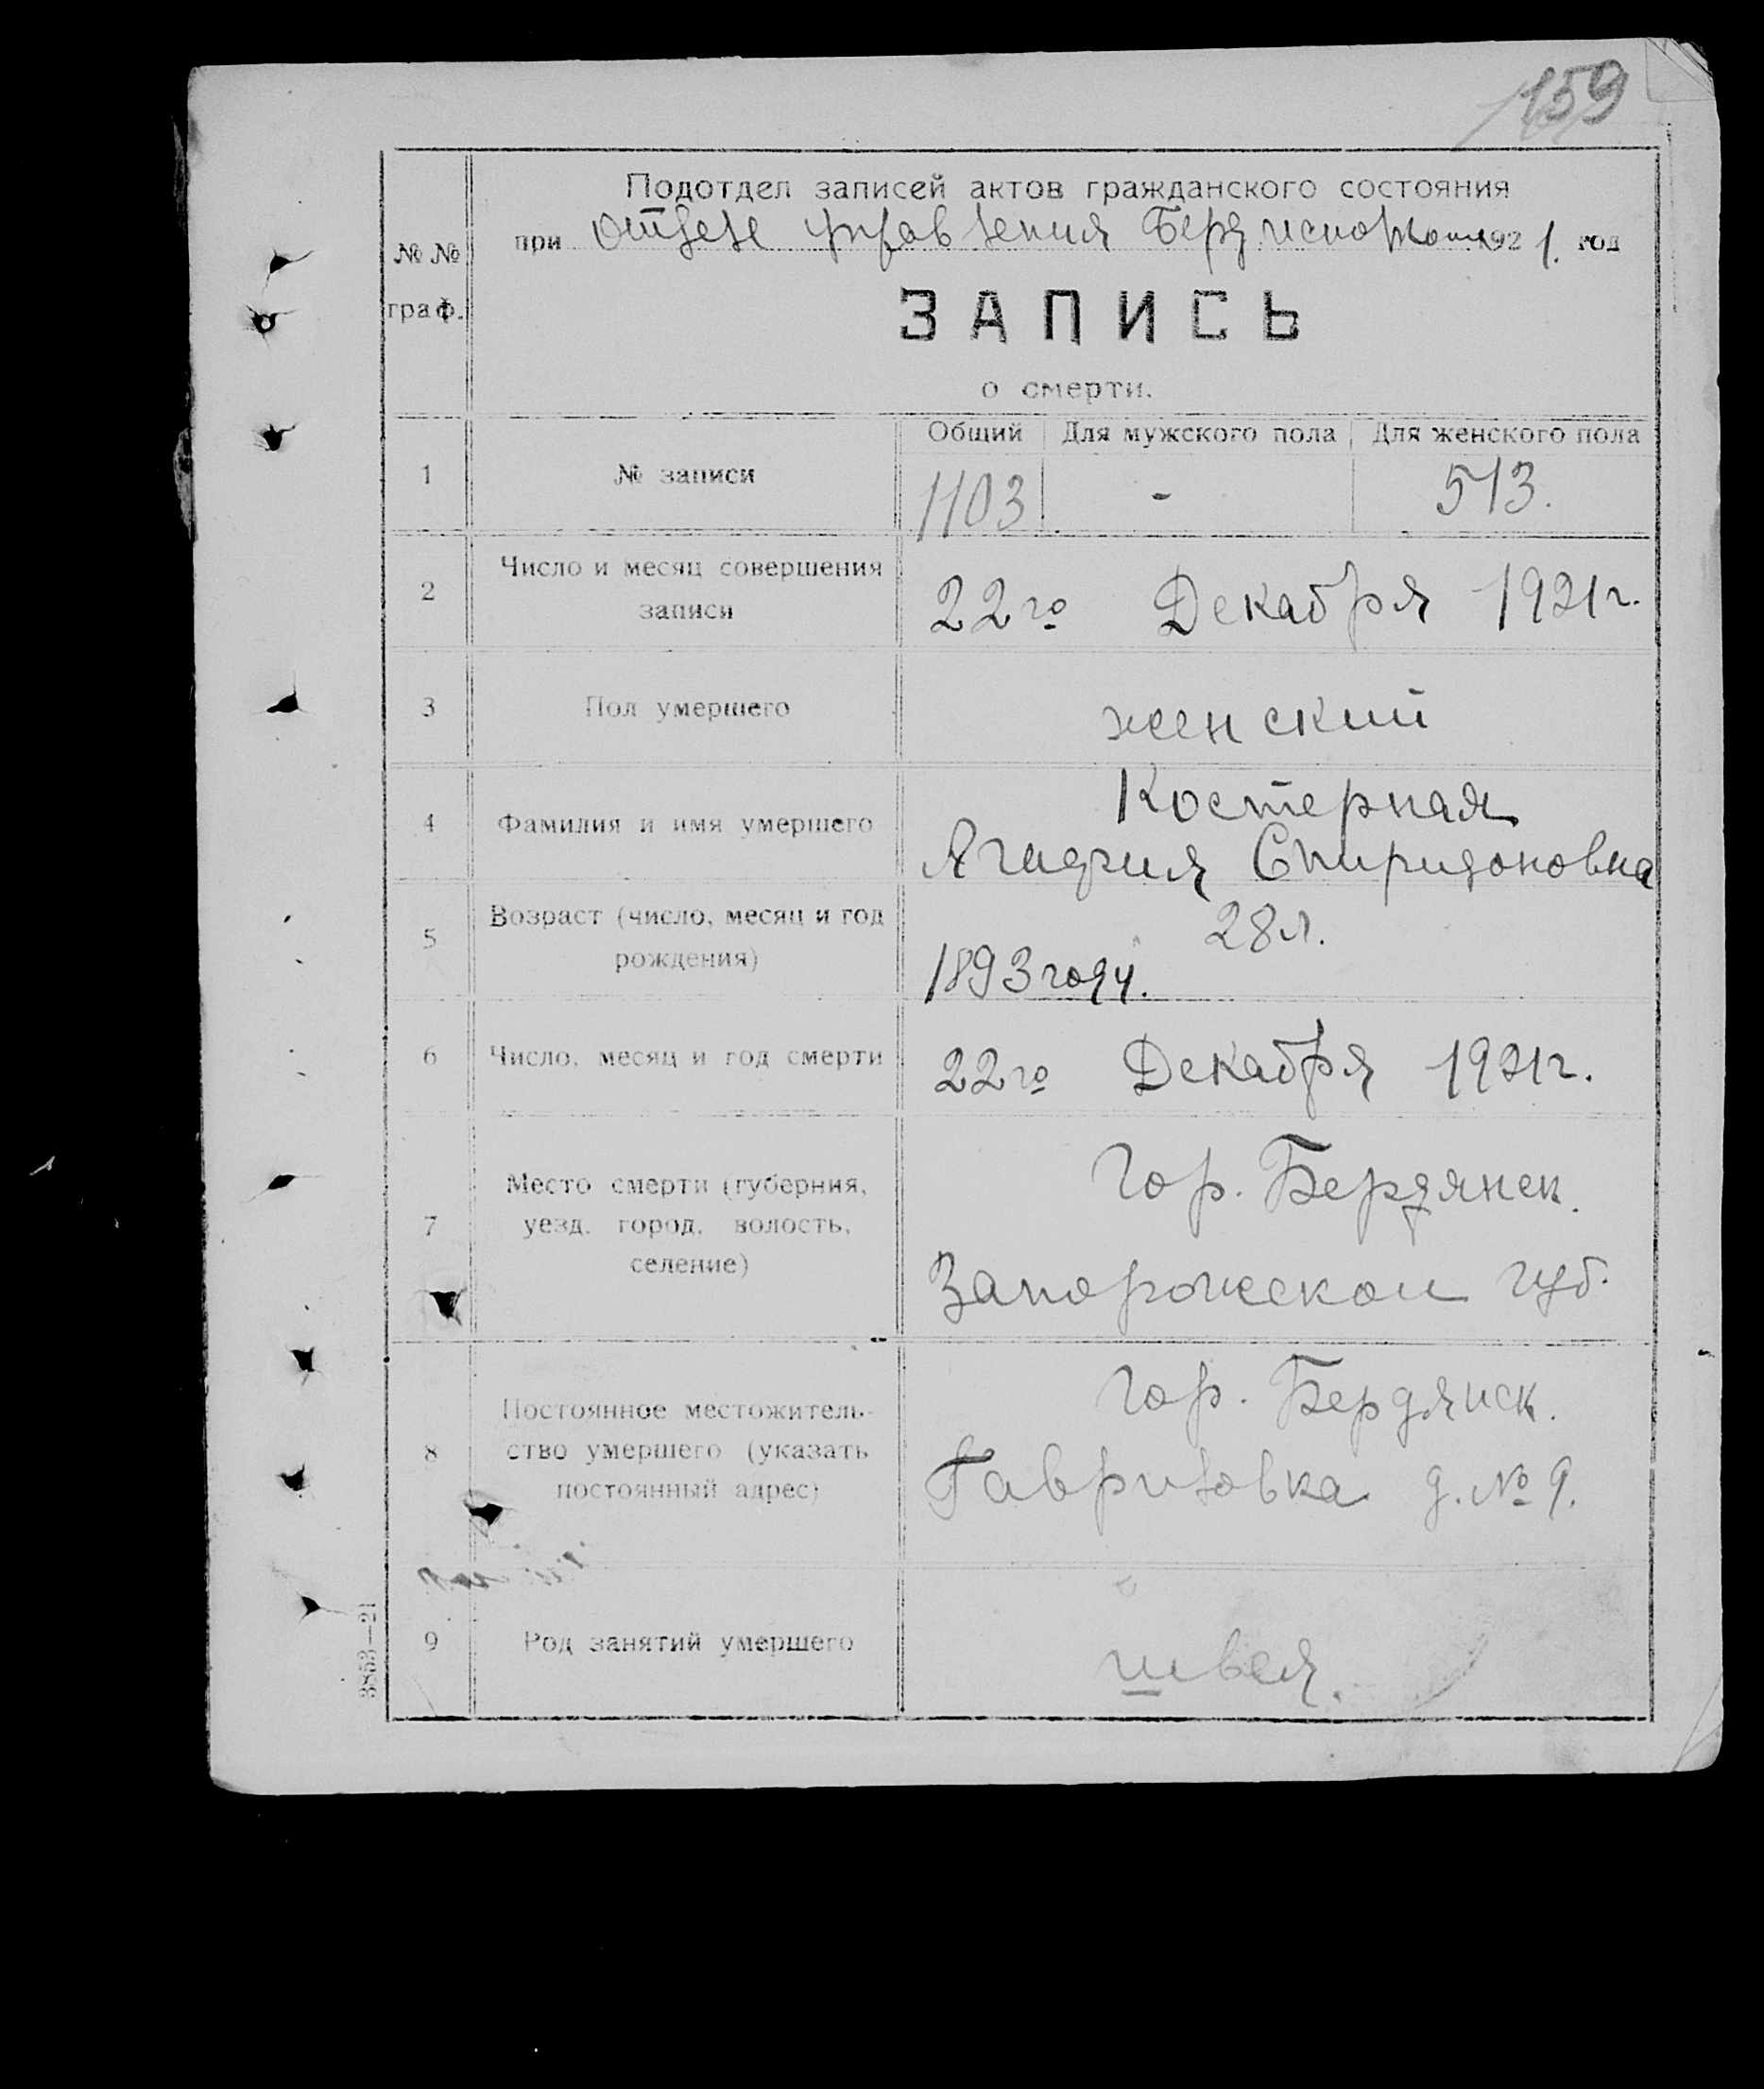 159
Подотдел записей актов гражданского состояния
при отделе управления Берд исполкома 1921. год
№ №
граф.
ЗАПИСЬ
о смерти.
Общий Для мужского пола Для женского пола
1 № записи 1103 - 513.
2 Число и месяц совершения
записи
22го Декабря 1921г.
3 Пол умершего женский
4 Фамилия и имя умершего
Костерная
Агафия Спиридоновна
5 Возраст (число, месяц и год
рождения)
28л.
1893 году.
6 Число, месяц и год смерти 22го Декабря 1921г.
7 Место смерти (губерния,
уезд, город, волость,
селение)
Гор. Бердянск.
Запорожской губ.
8 Постоянное местожитель-
ство умершего (указать
постоянный адрес)
Гор. Бердянск.
Гавриловка д. № 9.
9 Род занятий умершего швея.
3853—21